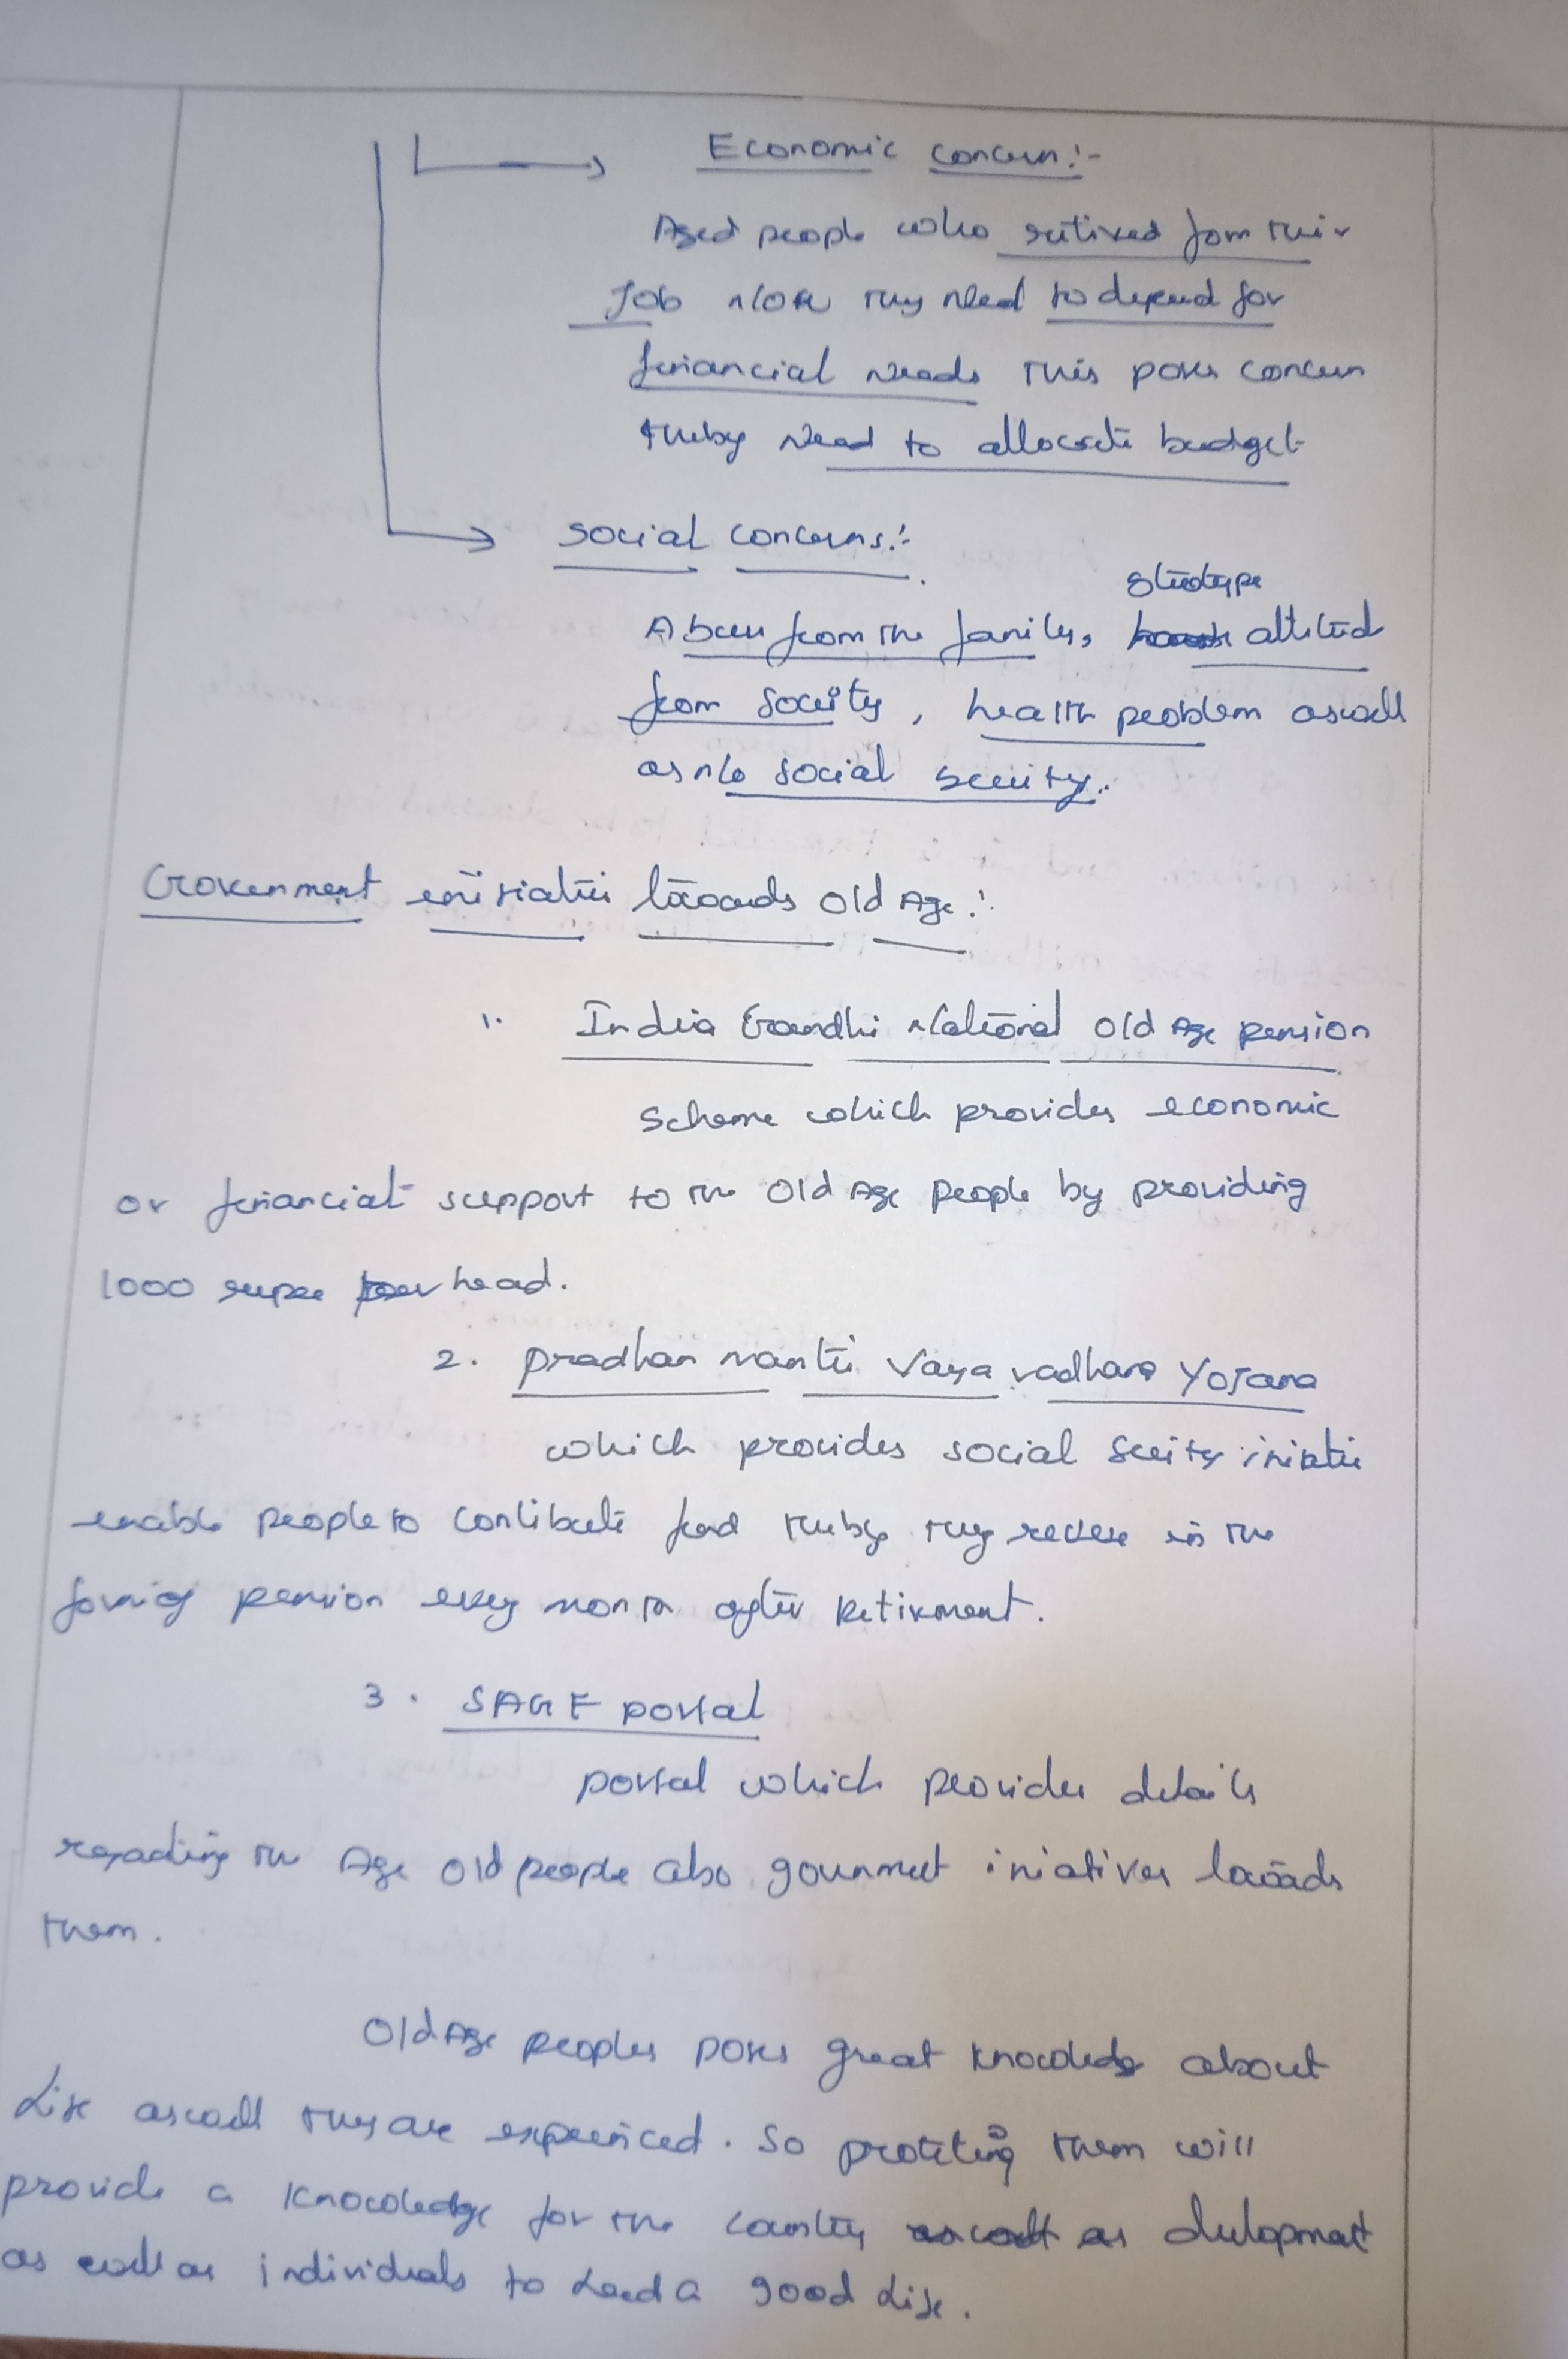 Economic concern:-
Aged people who retired from their
Job now they need to depend for
financial needs this poses concern
thereby need to allocate budget
Social concerns:-
stereotype
Abuse from the family, attitude
from society, health problem aswell
as no social security.
Government initiative towards Old Age:
1. Indira Gandhi National Old Age pension
Scheme which provides economic
or financial support to the Old Age people by providing
1000 rupee per head.
2. Pradhan mantri Vaya vadhana Yojana
which provides social security initiative
enable people to contribute fund thereby they receive in the
form of pension every month after retirement.
3. SAGE portal
portal which provides details
regarding the Age Old people also government iniatives towards
them.
Old Age peoples poses great knowledge about
Life aswell they are experienced. So protecting them will
provide a knowledge for the country as development
as well as individuals to Lead a good Life.